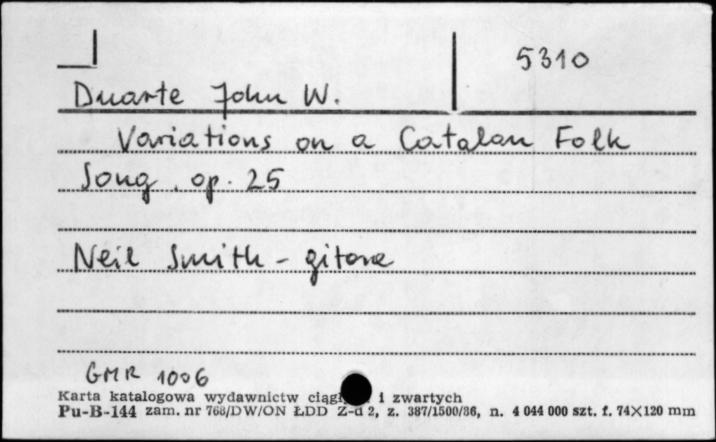 5310
Duarte John W.
Variations on a Catalan Folk
Song, op. 25
Neil Smith - gitara
GMR 1006
Karta katalogowa wydawnictw i zwartych
Pu-B-144 zam. nr 768/DW/ON ŁDD Z-d 2, z. 387/1500/86, n. 4 044 000 szt. f. 74×120 mm